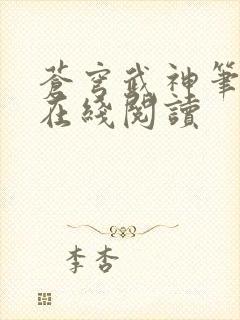 蒼穹武神筆
在綫閱讀
李杏